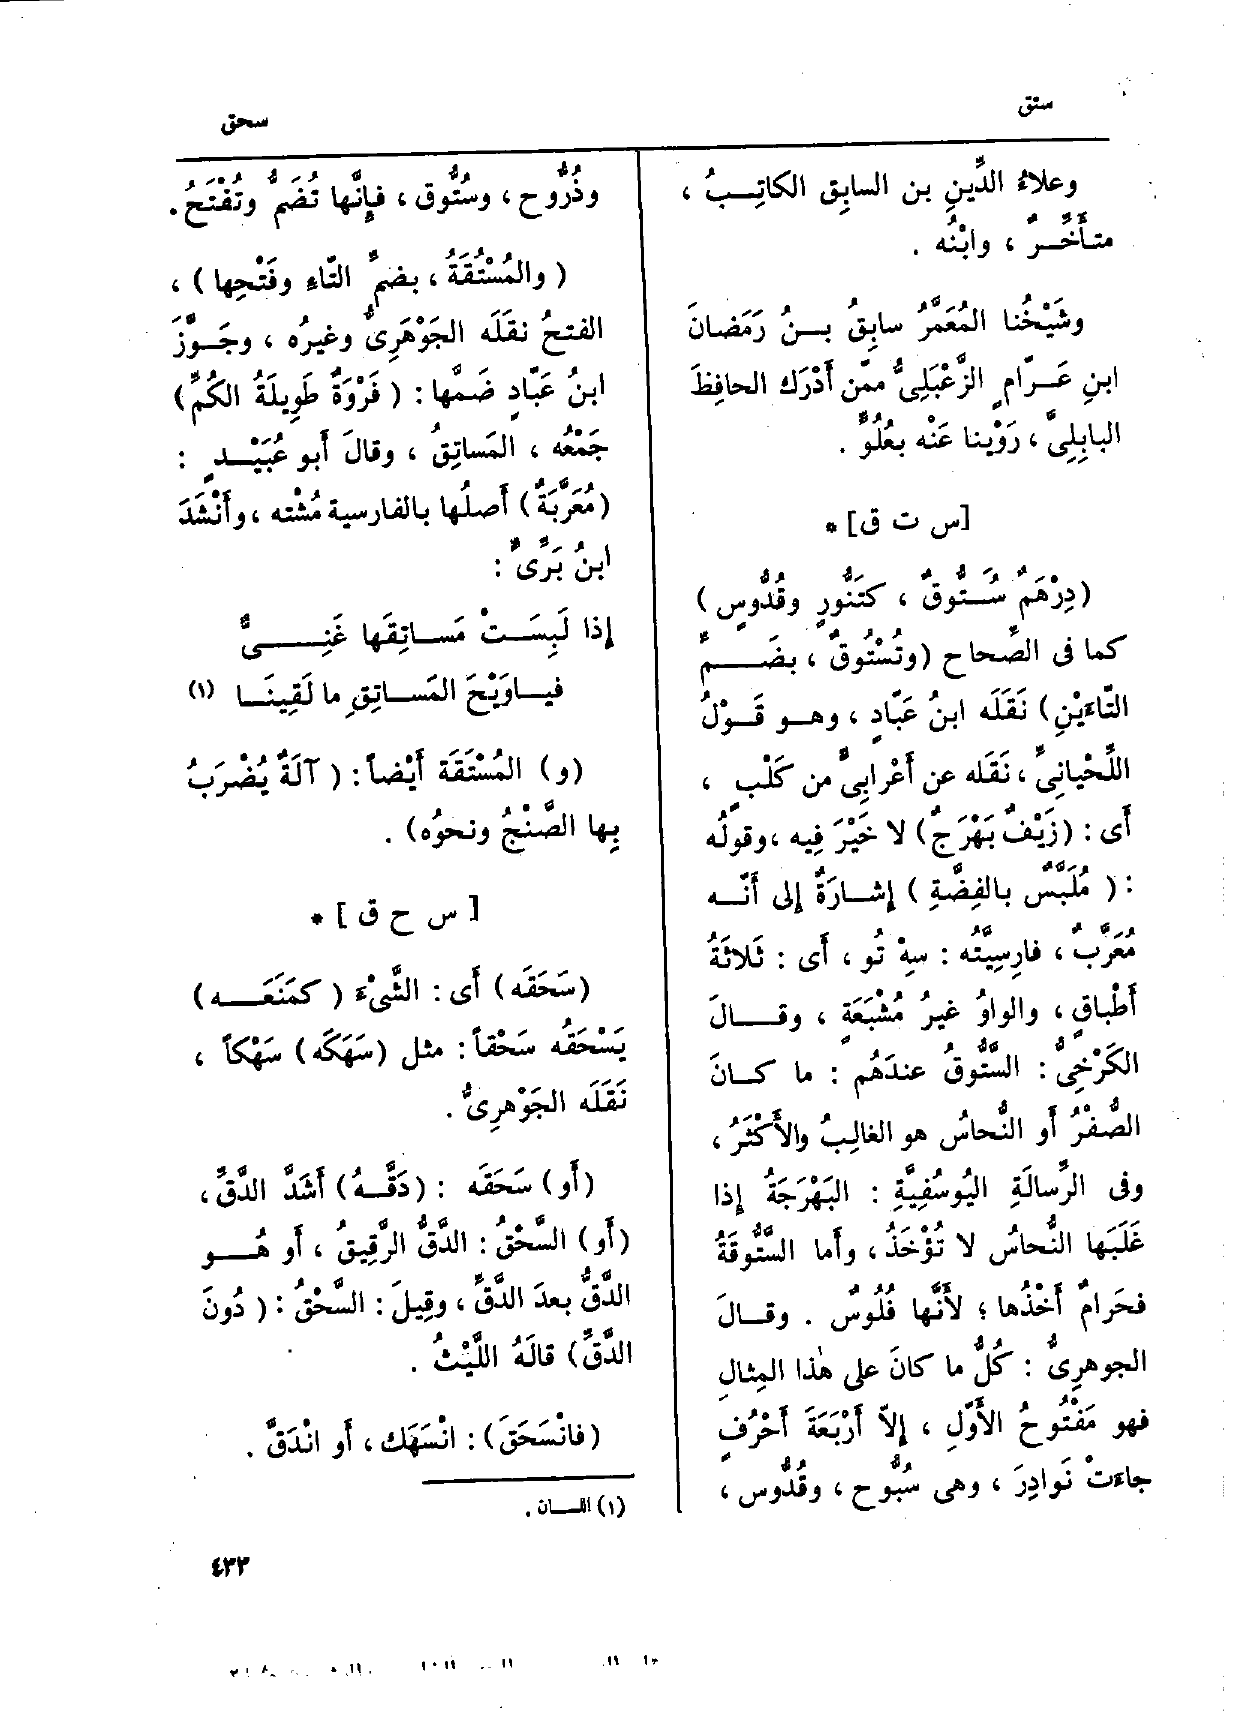 ستق
سحق
وعلاءُ الدِّينِ بن السابِق الكاتِــبُ ،
متـأَخِّــرٌ ، وابْنُه .
وشَيْخُنا المُعَمَّرُ سابِقُ بــنُ رَمَضانَ
ابنِ عَــرّامٍ الزَّعْبَلِىُّ ممّن أَدْرَك الحافِظَ
البابِلِىَّ ، رَوَيْنا عَنْه بعُلُوٍّ .
[س ت ق] *
(دِرْهَمٌ سَُــتُّوقٌ ، كتَنُّورٍ وقُدُّوسٍ)
كما فى الصِّحاح (وتُسْتُوقٌ ، بضَــمِّ
التّاءَيْنِ) نَقَلَه ابنُ عَبّادٍ ، وهــو قَــوْلُ
اللِّحْيانِىِّ ، نَقَله عن أَعْرابِىٍّ من كَلْبٍ ،
أَى : (زَيْفٌ بَهْرَجٌ) لا خَيْرَ فِيه ، وقولُه
: ( مُلَبَّسٌ بالفِضَّةِ ) إِشــارَةٌ إِلى أَنَّــه
مُعَرَّبٌ ، فارِسِيَّتُه : سِهْ تُو ، أَى : ثَلاثَةُ
أَطْباقٍ ، والواوُ غيرُ مُشْبَعَةٍ ، وقــالَ
الكَرْخِىُّ : السَّتُّوقُ عندَهُم : ما كــانَ
الصُّفْرُ أَو النُّحاسُ هو الغالِبُ والأَكْثَرُ ،
وفى الرِّسالَةِ اليُوسُفِيَّةِ : البَهْرَجَةُ إِذا
غَلَبَها النُّحاسُ لا تُؤْخَذُ ، وأَما السَّتُّوقَةُ
فحَرامٌ أَخْذُها ؛ لأَنَّها فُلُوسٌ . وقــالَ
الجوهرِىُّ : كُلُّ ما كانَ على هٰذا المِثالِ
فهو مَفْتُوحُ الأَوَّلِ ، إِلاّ أَرْبَعَةَ أَحْرُفٍ
جاءَتْ نَوادِرَ ، وهى سُبُّوح ، وقُدُّوس ،
وذُرُّوح ، وسُتُّوق ، فإِنَّها تُضَمُّ وتُفْتَحُ .
( والمُسْتُقَةُ ، بضمِّ التّاءِ وفَتْحِها ) ،
الفتحُ نقلَه الجَوْهَرِىُّ وغيرُه ، وجَــوَّزَ
ابنُ عَبّادٍ ضَمَّها : ( فَرْوَةٌ طَوِيلَةُ الكُمِّ)
جَمْعُه ، المَساتِقُ ، وقالَ أَبو عُبَيْــدٍ :
(مُعَرَّبَةٌ) أَصلُها بالفارسية مُشْته ، وأَنْشَدَ
ابنُ بَرِّىٍّ :
إِذا لَبِسَــتْ مَســاتِقَها غَنِــىٌّ
فيــاوَيْحَ المَســاتِقِ ما لَقِينَــا (١)
(و) المُسْتَقَة أَيْضاً : ( آلَةٌ يُضْرَبُ
بِها الصَّنْجُ ونحوُه) .
[ س ح ق ] *
(سَحَقَه) أَى : الشَّىْءَ ( كمَنَعَــه )
يَسْحَقُه سَحْقاً : مثل (سَهَكَه) سَهْكاً ،
نَقَلَه الجَوْهرِىُّ .
(أَو) سَحَقَه : (دَقَّــهُ) أَشَدَّ الدَّقِّ ،
(أَو) السَّحْقُ : الدَّقُّ الرَّقِيقُ ، أَو هُــو
الدَّقُّ بعدَ الدَّقِّ ، وقِيلَ : السَّحْقُ : ( دُونَ
الدَّقِّ) قالَهُ اللَّيْثُ .
(فانْسَحَقَ) : انْسَهَك ، أَو انْدَقَّ .
(١) اللســان .
٤٣٣